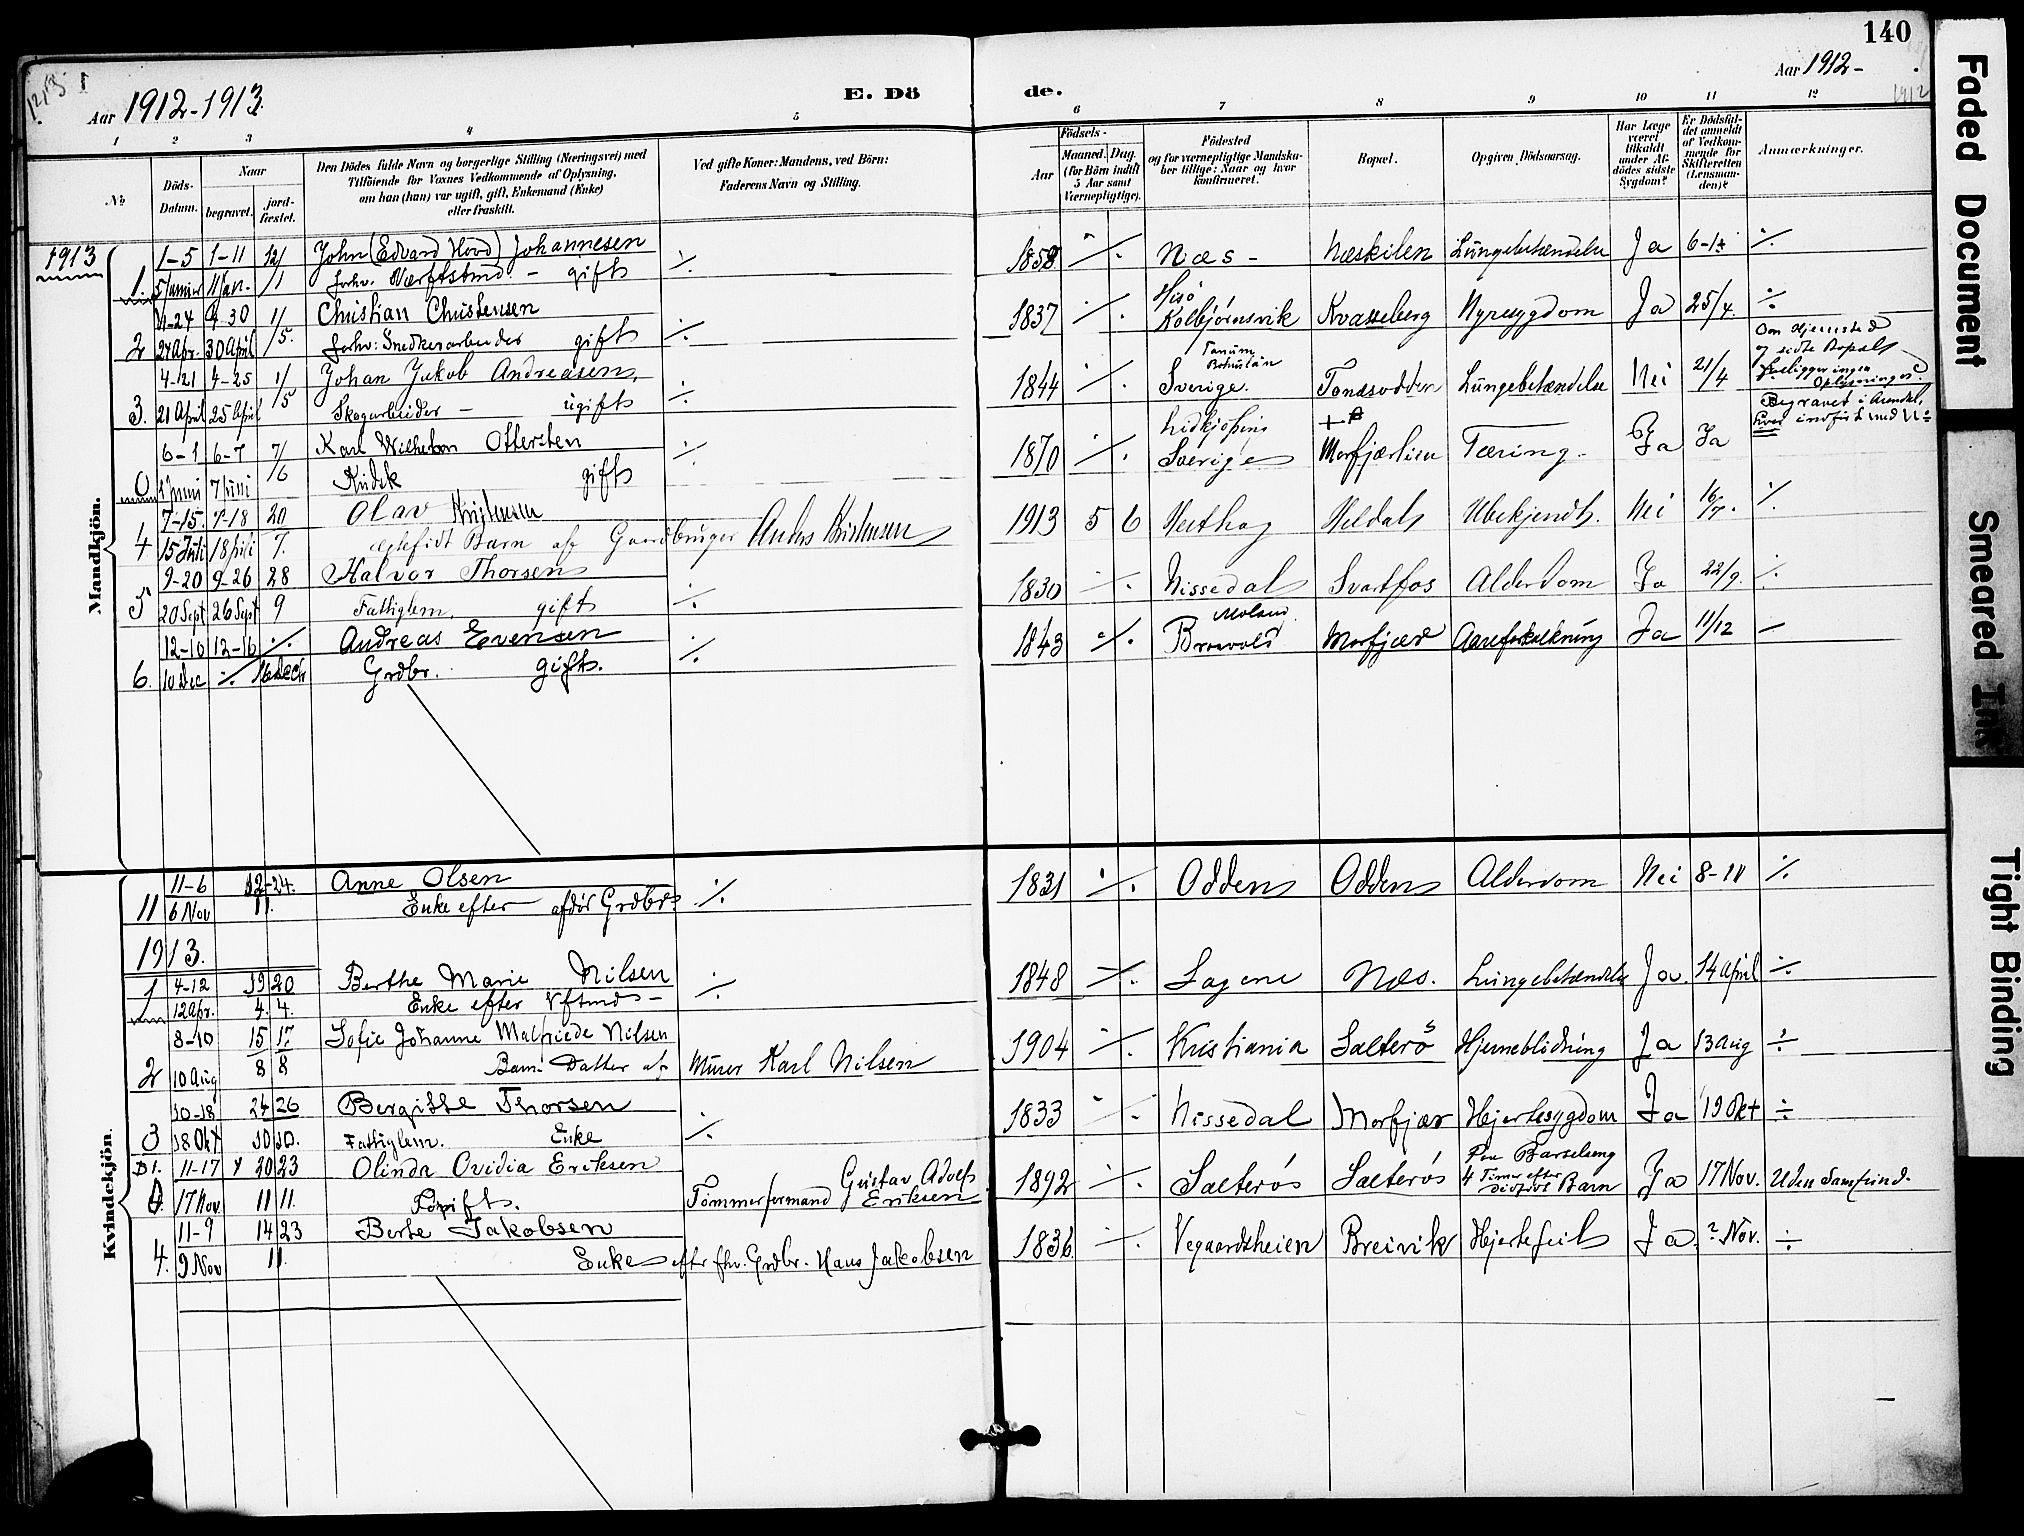 140
Aar 1912-1913.
E. Dö
de.
Aar 1912-
1 2 3 4 5 6 7 8 9 10 11 12
No
Döds-Datum.
Naar
begravet.
jordfæstet.
Den Dödes fulde Navn og borgerlige Stilling (Næringsvei) med
Tilföiende for Voxnes Vedkommende af Oplysning,
om han (hun) var ugift, gift, Enkemand (Enke)
eller fraskilt.
Ved gifte Koner: Mandens, ved Börn:
Faderens Navn og Stilling.
Födsels-
Aar
Maaned. Dag.
(for Börn indtil
5 Aar samt
Værnepligtige).
Födested
og for værnepligtige Mandska-
ber tillige: Naar og hvor
konfirmeret.
Bopæl.
Opgiven Dödsaarsag.
Har Læge
været
tilkaldt
under Af-
dödes sidste
Sygdom?
Er Dödsfal-
det anmeldt
af Vedkom-
mende for
Skifteretten
(Lensman-
den)?
Anmærkninger.
Mandkjön.
1913
1-5 1-11 12/ John (Edvard Hövd) Johannesen 1858 ./. Næs - Næskilen Lungebetændelse Ja 6-1 ./.
1. 5 Januar 11 Jan. /1 forhv. Værftstmd. - gift ./.
4-24 4-30 1/ Christian Christensen 1837 ./. Hisö Kolbjörnsvik Kvasseberg Nyresygdom Ja 25/4. ./.
2 24 Apr. 30 April /5. forhv: Snedkerarbeider gift ./.
4-21 4-25 1/ Johan Jakob Andreasen, 1844 ./. Tanum Bohuslän Sverige. Tonesodden Lungebetændelse Nei 21/4 Om Hjemsted
og sidste Bopæl
foreligger ingen
Oplysninger.
3. 21 April 25 April /5 Skogarbeider - ugift ./.
6-1 6-7 7/ Karl Wilhelm Ottersten 1870 ./. Lidkjöping Sverige Morfjærlien Tæring. Ja Ja Begravet i Arendal,
hvor indfört med No
0 1 Juni 7 Juni /6 Kudsk gift ./.
7-15. 7-18 20 Olav Kristensen 1913 5 6 Veithag Heldal Ubekjendt. Nei 16/7. ./.
4 15 Juli 18 Juli 7. ægtefödt Barn af Gaardbruger Anders Kristensen
9-20 9-26 28 Halvor Thorsen 1830 ./. Nissedal Svartfos Alderdom Ja 22/9. ./.
5 20 Sept 26 Sept 9 Fattiglem, gift ./.
12-10 12-16 ./. Andreas Evensen 1843 ./. Moland Morfjær Aareforkalkning Ja 11/12 -
6. 10 Dec ./. 16 Decbr Grdbr. gift. ./.
Kvindekjön.
11-6 12-24. Anne Olsen 1831 ./. Odden Odden Alderdom Nei 8-11 ./.
11 6 Nov 11. Enke efter afdöd Grdbr. ./.
1913.
1 4-12 19 20 Berthe Marie Nilsen 1848 ./. Lagene Næs. Lungebetændelse Ja. 14 April ./.
12 Apr. 4. 4. Enke efter Vftmd - ./.
8-10 15 17. Sofie Johanne Malfriede Nilsen 1904 ./. Kristiania Salterö Hjerneblödning Ja 13 Aug ./.
2 10 Aug 8 8 Barn. Datter af Murer Karl Nilsen
10-18 24 26 Bergitte Thorsen 1833 ./. Nissedal Morfjær Hjertesygdom Ja 19 Okt ./.
3 18 Okt 10 10. Fattiglem. Enke ./.
D1. 11-17 20 23 Olinda Ovidia Eriksen 1892 ./. Salterös Salterös Paa Barselseng
4 Timer efter
dödfödt Barn Ja 17 Nov. Uden Samfund.
17 Nov 11 11. gift. Tömmerformand Gustav Adolf Eriksen
11-9 14 23 Berte Jakobsen 1836 ./. Vegaardsheien Breivik Hjertefeil Ja. ? Nov. ./.
4. 9 Nov 11. Enke efter fhv. Grdbr. Hans Jakobsen
Faded Document
Smeared Ink
Tight Binding